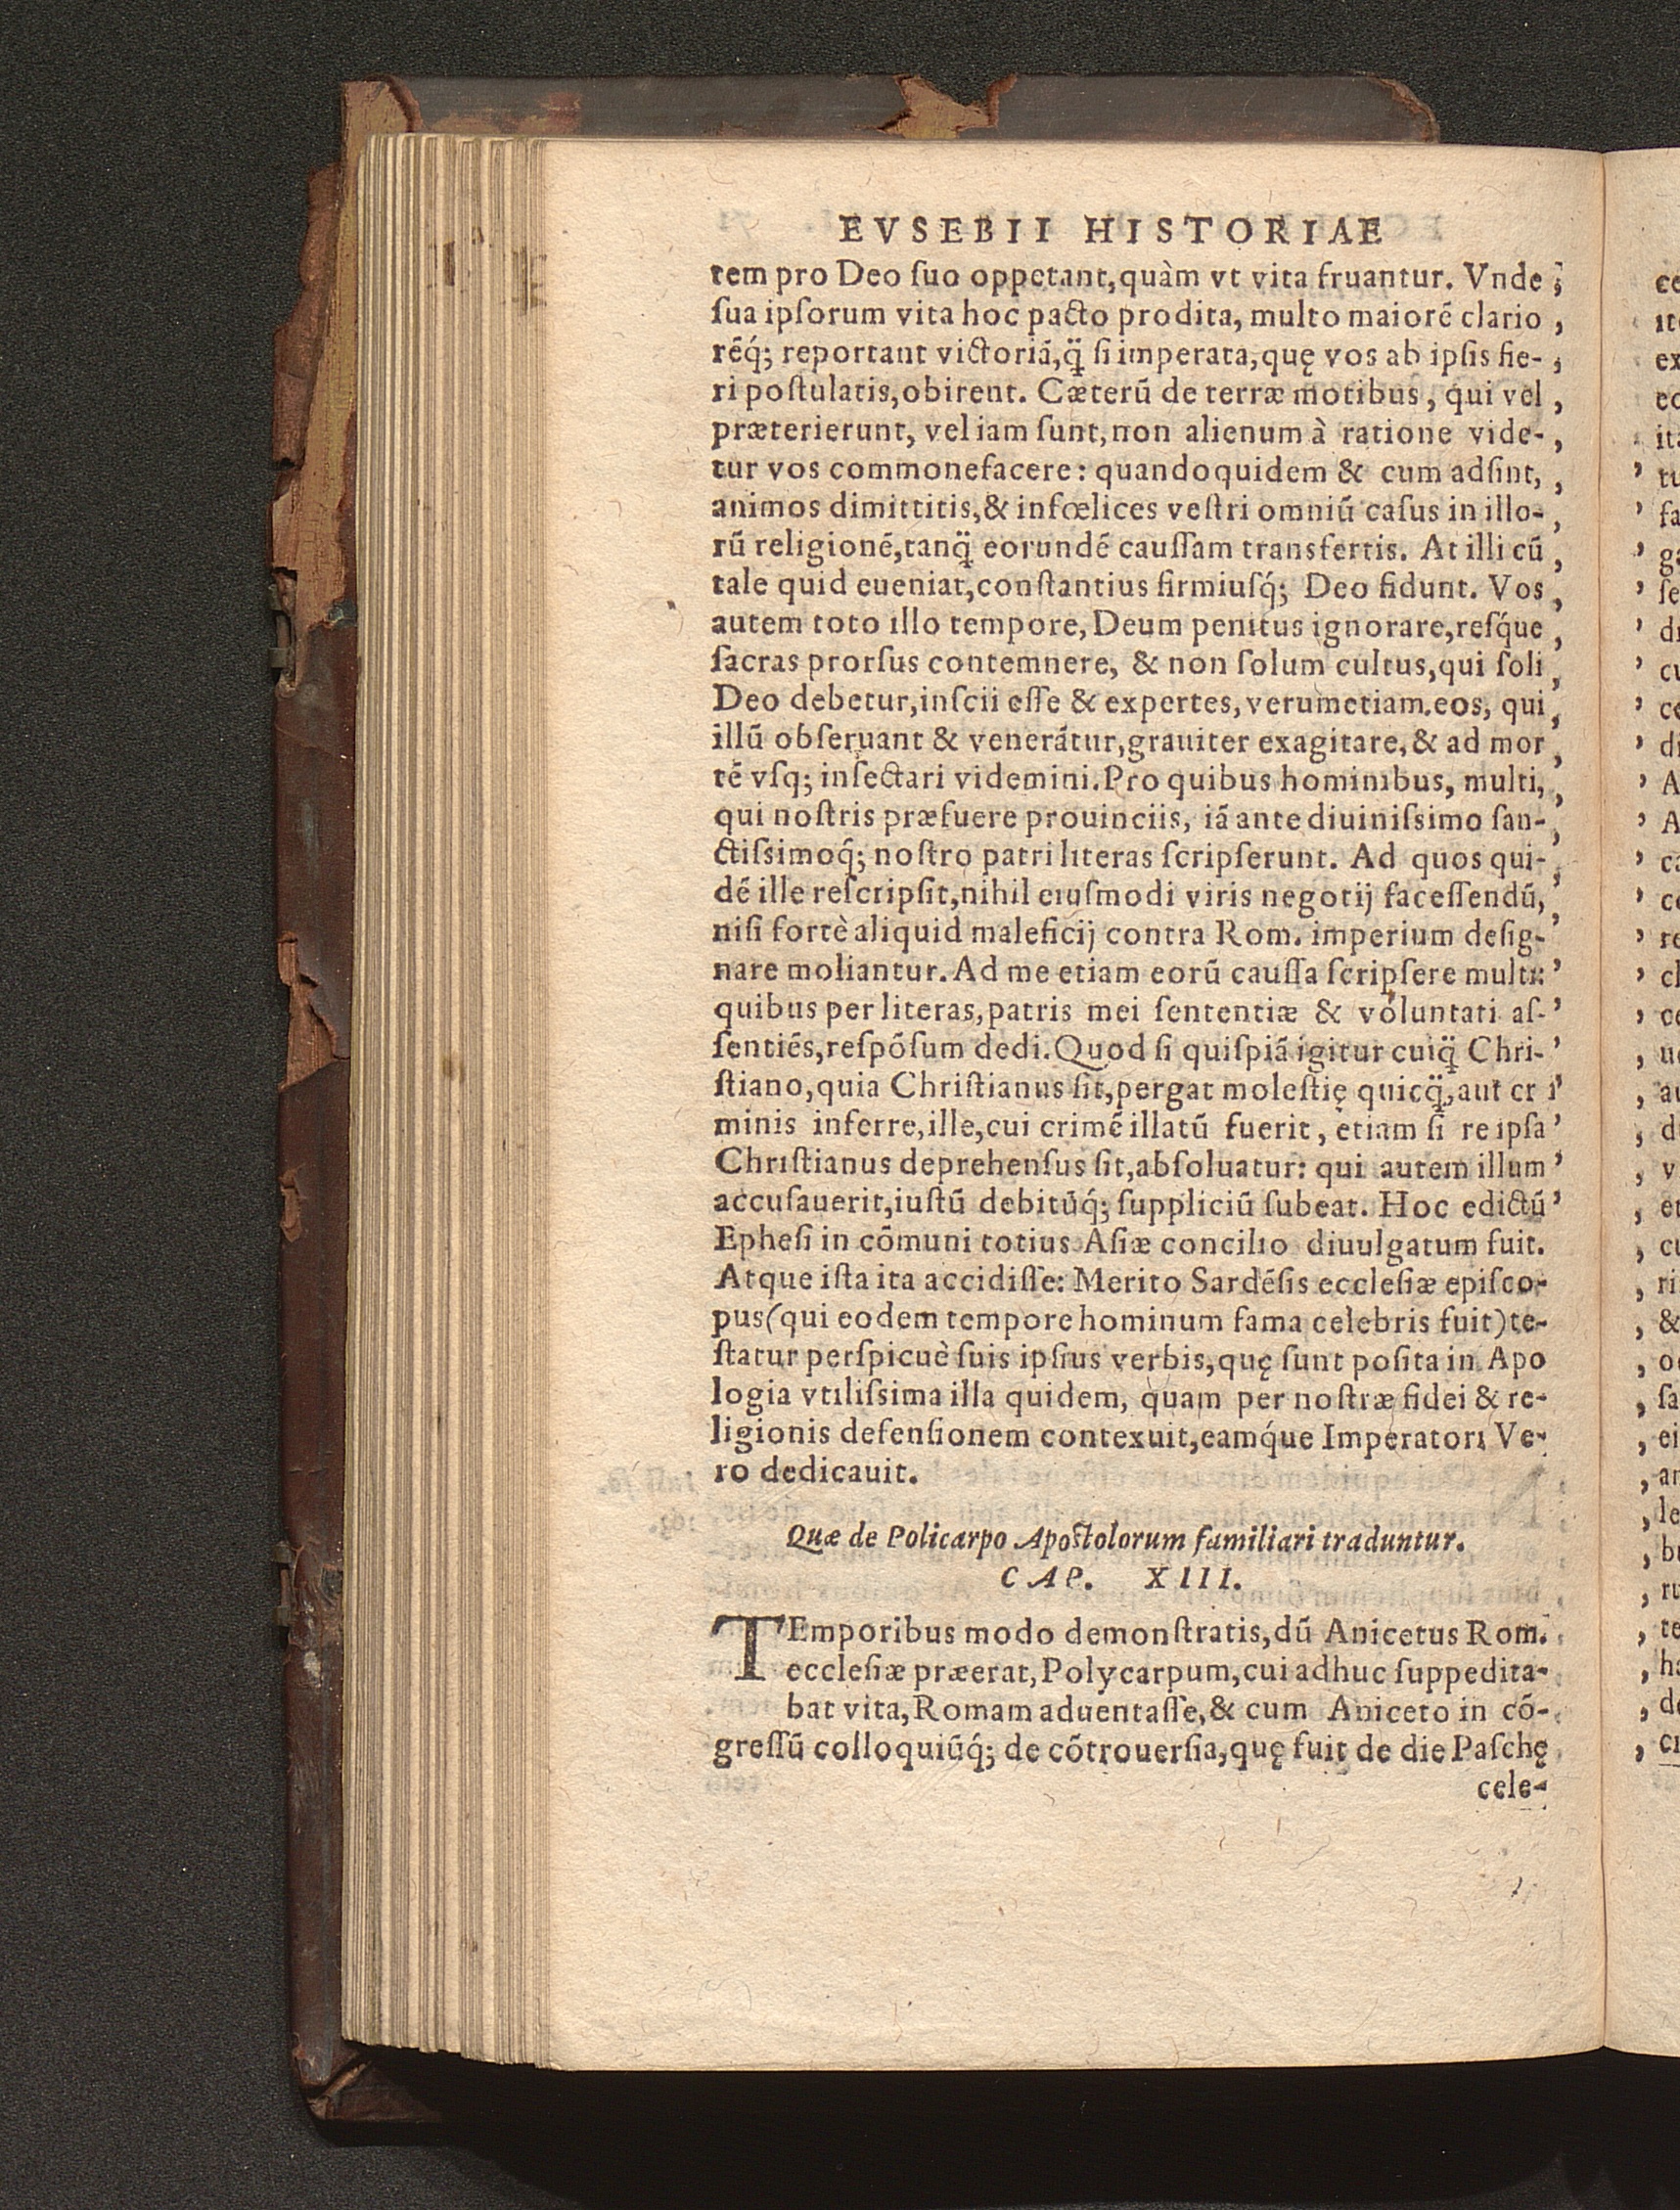 EVSEBII HISTORIAE
tem pro Deo ſuo oppetant,quàm vt vita fruantur. Vnde ;
ſua ipſorum vita hoc pacto prodita, multo maiorē clario ,
rēq́; reportant victoriā,q̈ ſi imperata,quę vos ab ipſis fie- ,
ri poſtulatis,obirent. Cæterū de terræ motibus, qui vel ,
præterierunt, vel iam ſunt,non alienum à ratione vide- ,
tur vos commonefacere: quandoquidem & cum adſint, ,
animos dimittitis,& infœlices veſtri omniū caſus in illo- ,
rū religionē,tanq̈ eorundē cauſſam transfertis. At illi cū ,
tale quid eueniat,conſtantius firmiuſq́; Deo fidunt. Vos ,
autem toto illo tempore, Deum penitus ignorare,reſq́ue ,
ſacras prorſus contemnere, & non ſolum cultus,qui ſoli ,
Deo debetur,inſcii eſſe & expertes, verumetiam.eos, qui ,
illū obſeruant & venerātur,grauiter exagitare,& ad mor ,
tē vſq; inſectari videmini.Pro quibus hominibus, multi, ,
qui noſtris præfuere prouinciis, iā ante diuiniſsimo ſan- ,
ctiſsimoq́; noſtro patri literas ſcripſerunt. Ad quos qui- ,
dē ille reſcripſit,nihil eiuſmodi viris negotij faceſſendū, ,
niſi fortè aliquid maleficij contra Rom. imperium deſig- ’
nare moliantur. Ad me etiam eorū cauſſa ſcripſere multi: ’
quibus per literas,patris mei ſententiæ & voluntati aſ- ’
ſentiēs,reſpōſum dedi.Quod ſi quiſpiā igitur cuiq̈ Chri- ’
ſtiano,quia Chriſtianus ſit,pergat moleſtię quicq̈,aut cr i’
minis inferre,ille,cui crimē illatū fuerit, etiam ſi re ipſa ’
Chriſtianus deprehenſus ſit,abſoluatur: qui autem illum ’
accuſauerit,iuſtū debitūq́; ſuppliciū ſubeat. Hoc edictū ’
Epheſi in cōmuni totius Aſiæ concilio diuulgatum fuit.
Atque iſta ita accidiſſe: Merito Sardēſis eccleſiæ epiſco-
pus(qui eodem tempore hominum fama celebris fuit)te-
ſtatur perſpicuè ſuis ipſius verbis,quę ſunt poſita in Apo
logia vtiliſsima illa quidem, quam per noſtræ fidei & re-
ligionis defenſionem contexuit,eamq́ue Imperatori Ve-
ro dedicauit.
Quæ de Policarpo Apoſtolorum familiari traduntur.
CAP. XIII.
TEmporibus modo demonſtratis,dū Anicetus Rom.
eccleſiæ præerat,Polycarpum,cui adhuc ſuppedita-
bat vita,Romam aduentaſſe,& cum Aniceto in cō-
greſſū colloquiūq́; de cōtrouerſia,quę fuit de die Paſchę
cele-